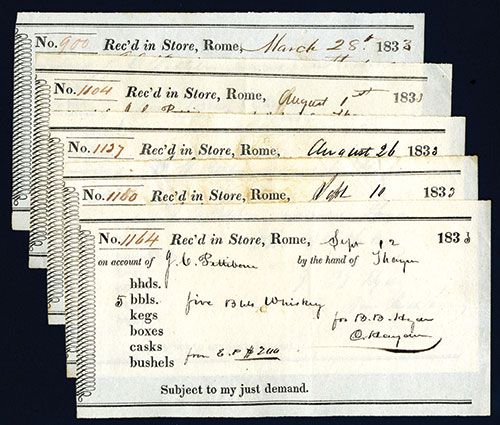 No. 900 Rec'd in Store, Rome, March 28th 1833
No. 1104 Rec'd in Store, Rome, August 1st 1833
No. 1137 Rec'd in Store, Rome, August 26 1833
No. 1160 Rec'd in Store, Rome, Sept 10 1833
No. 1164 Rec'd in Store, Rome, Sept 12 1833
on account of J. C. Pettibone by the hand of Thayer
bhds.
5 bbls. five Bbls Whiskey
kegs for B. B. Hyde
boxes
casks
bushels from
Subject to my just demand.